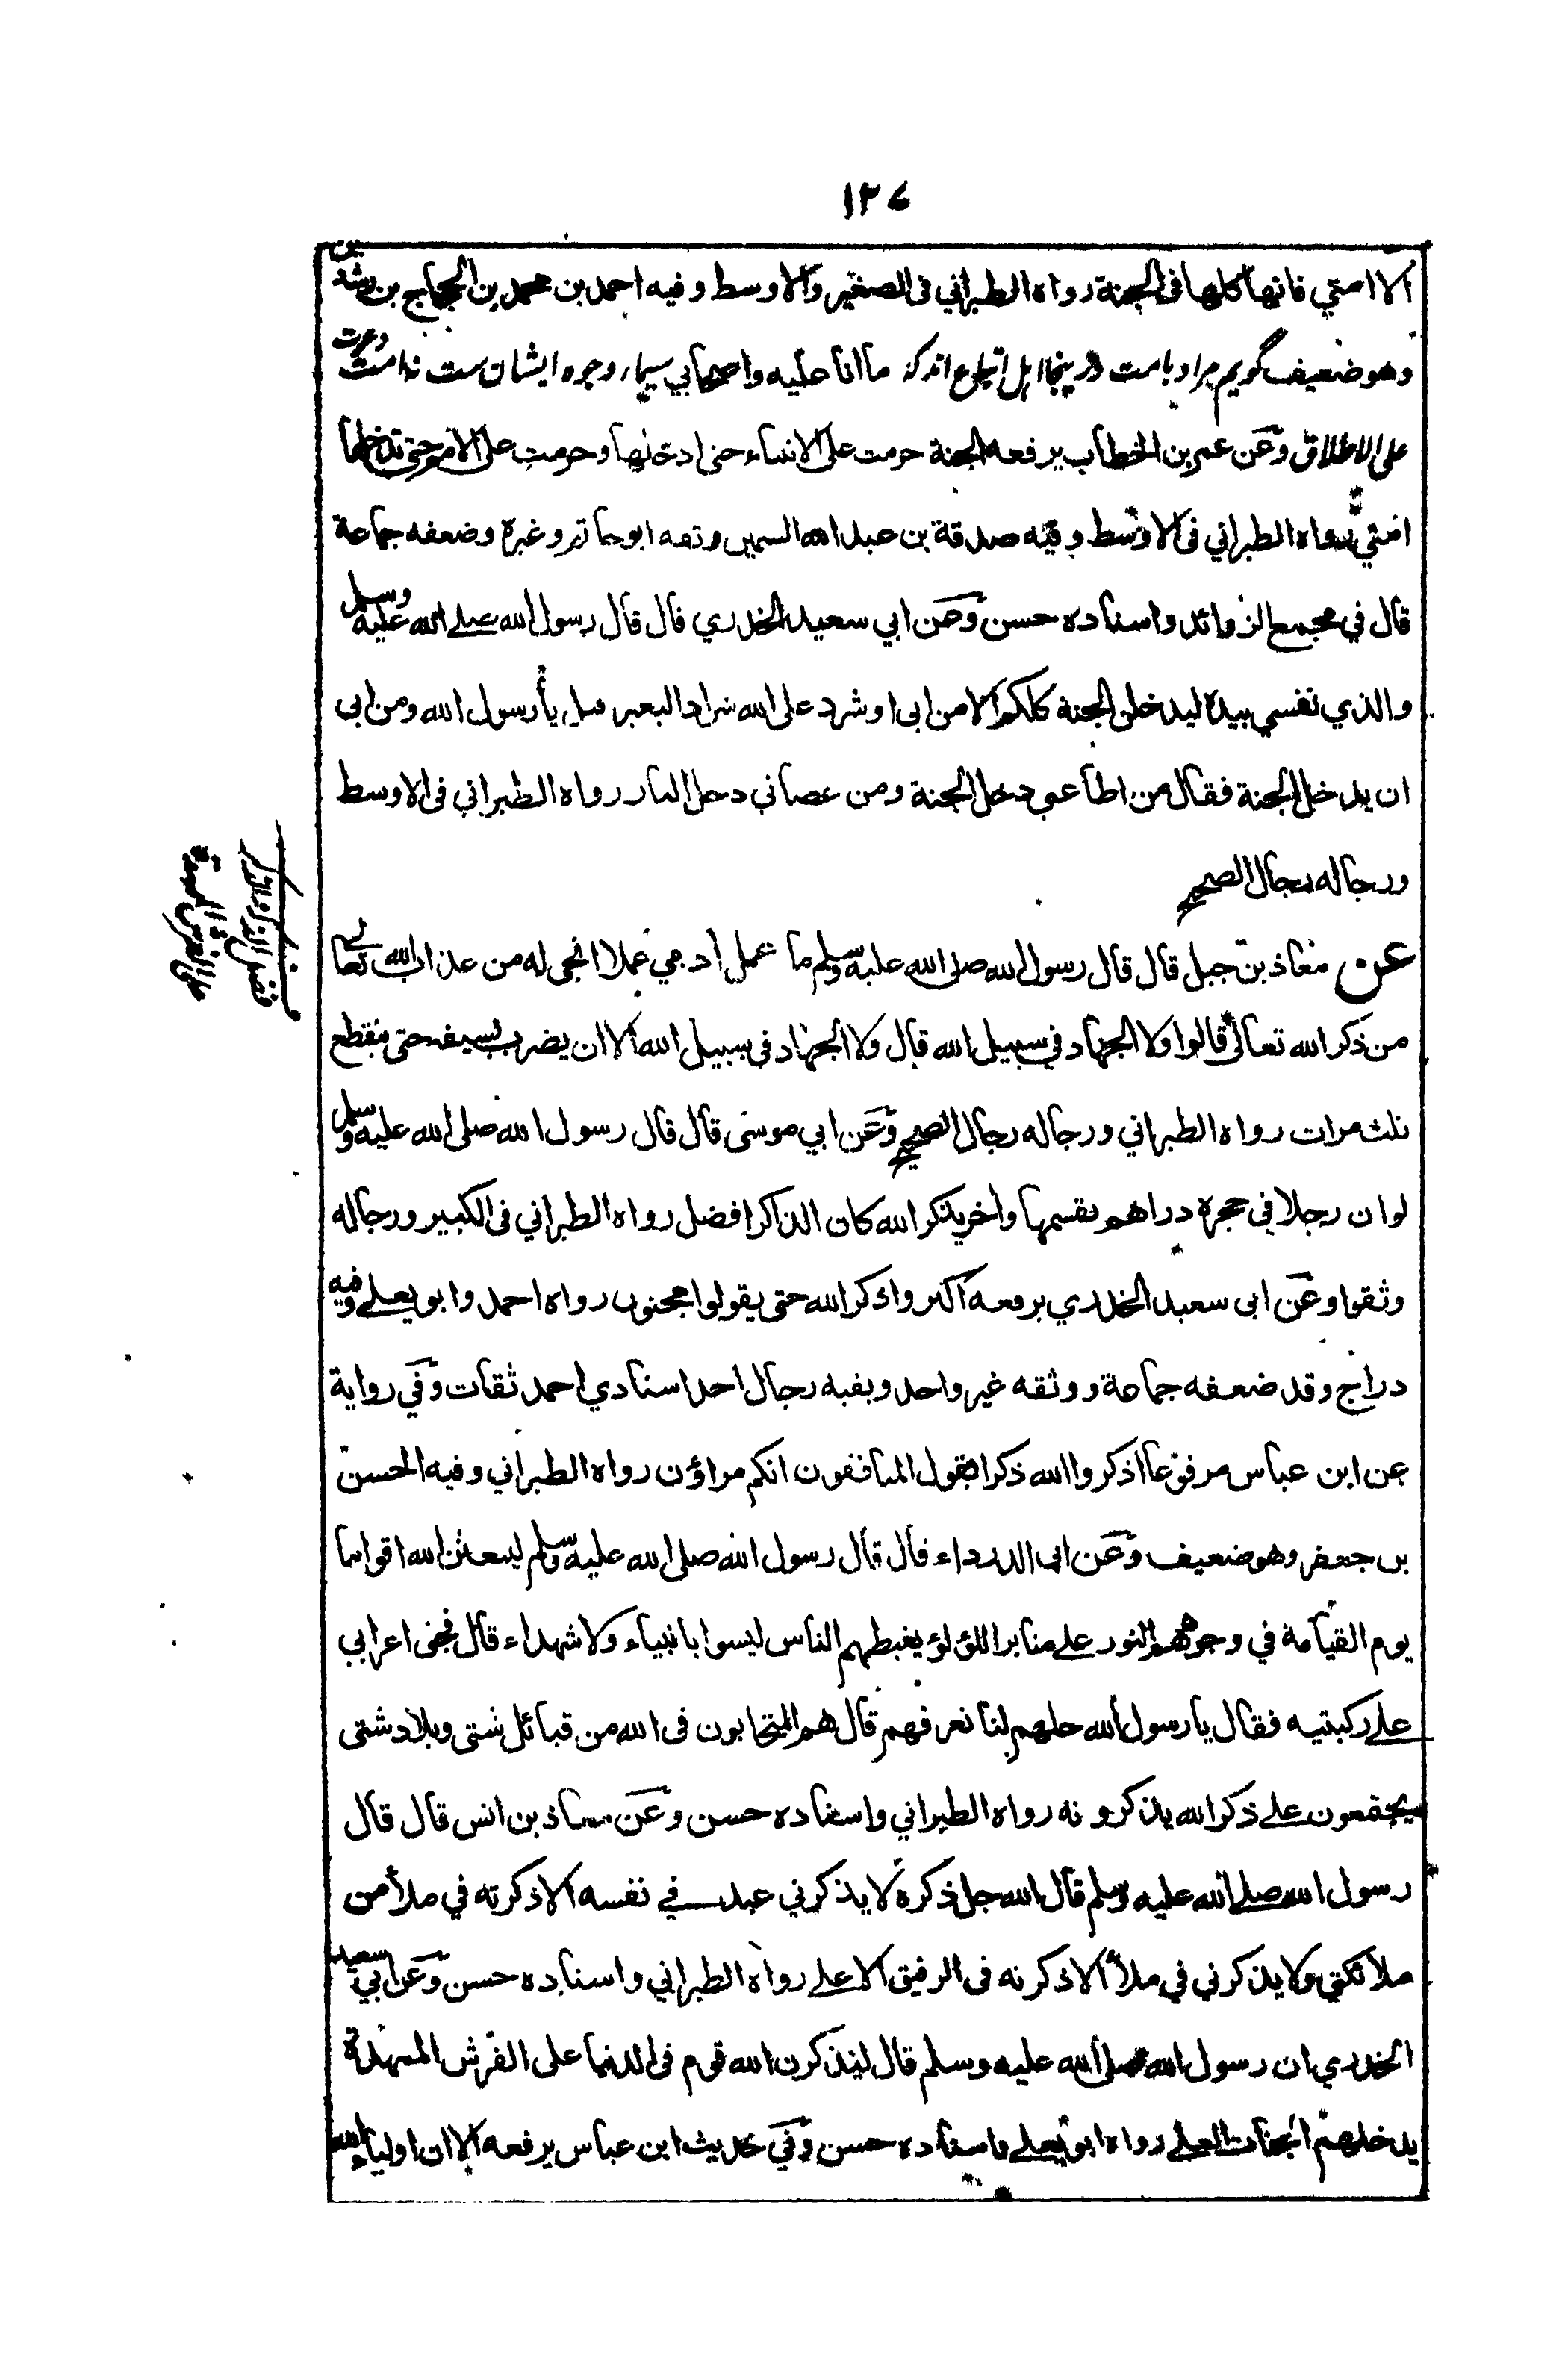 ١٢٧
الا امتي فانها كلها فى الجنة رواه الطبراني فى الصغير والاوسط وفيه احمد بن محمد بن الحجاج بن رشدين
وهو ضعيف گويم مراد بامت درينجا اهل اتباع اندكه ما انا عليه واصحابي سيماء وجوه ايشان ست نه امت دعوت
على الاطلاق وعن عمر بن الخطاب يرفعه الجنة حرمت على الانبياء حتى ادخلها وحرمت على الامم حتى تدخلها
امتي رواه الطبراني فى الاوسط وفيه صدقة بن عبد الله السمين وثقه ابو حاتم وغيره وضعفه جماعة
قال في مجمع الزوائد واسناده حسن وعن ابي سعيد الخدري قال قال رسول الله صلى الله عليه وسلم
والذي نفسي بيده ليدخلن الجنة كلكم الا من ابى او شرد على الله شراد البعير قيل يا رسول الله ومن ابى
ان يدخل الجنة فقال من اطاعني دخل الجنة ومن عصاني دخل النار رواه الطبراني فى الاوسط
ورجاله رجال الصحيح
عن معاذ بن جبل قال قال رسول الله صلى الله عليه وسلم ما عمل ادمي عملا انجى له من عذاب الله تعالى
من ذكر الله تعالى قالوا ولا الجهاد في سبيل الله قال ولا الجهاد في سبيل الله الا ان يضرب بسيفه حتى ينقطع
ثلث مرات رواه الطبراني ورجاله رجال الصحيح وعن ابي موسى قال قال رسول الله صلى الله عليه وسلم
لو ان رجلا في حجره دراهم يقسمها واخر يذكر الله كان الذاكر افضل رواه الطبراني فى الكبير ورجاله
وثقوا وعن ابى سعيد الخدري يرفعه اكثروا ذكر الله حتى يقولوا مجنون رواه احمد وابو يعلى وفيه
دراج وقد ضعفه جماعة ووثقه غير واحد وبقية رجال احد اسنادي احمد ثقات وفي رواية
عن ابن عباس مرفوعا اذكروا الله ذكرا يقول المنافقون انكم مراؤن رواه الطبراني وفيه الحسن
بن جعفر وهو ضعيف وعن ابى الدرداء قال قال رسول الله صلى الله عليه وسلم ليبعثن الله اقواما
يوم القيامة في وجوههم النور على منابر اللؤلؤ يغبطهم الناس ليسوا بانبياء ولا شهداء قال فجثى اعرابي
على ركبتيه فقال يا رسول الله حلهم لنا نعرفهم قال هم المتحابون فى الله من قبائل شتى وبلاد شتى
يجتمعون على ذكر الله يذكرونه رواه الطبراني واسناده حسن وعن معاذ بن انس قال قال
رسول الله صلى الله عليه وسلم قال الله جل ذكره لا يذكرني عبد في نفسه الا ذكرته في ملأ من
ملائكتي ولا يذكرني في ملأ الا ذكرته فى الرفيق الاعلى رواه الطبراني واسناده حسن وعن ابي سعيد
الخدري ان رسول الله صلى الله عليه وسلم قال ليذكرن الله قوم فى الدنيا على الفرش الممهدة
يدخلهم الجنات العلى رواه ابو يعلى واسناده حسن وفي حديث ابن عباس يرفعه الا ان اولياء الله